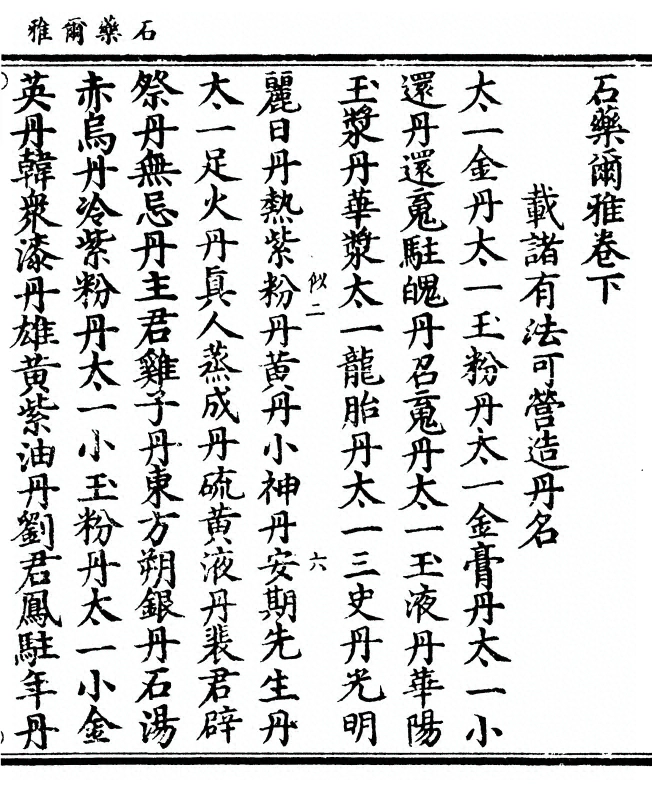 石藥爾雅
石藥爾雅卷下
載諸有法可營造丹名
太一金丹太一玉粉丹太一金膏丹太一小
還丹還䰟駐魄丹召䰟丹太一玉液丹華陽
玉漿丹華漿太一龍胎丹太一三史丹光明
似二
六
麗日丹熱紫粉丹黃丹小神丹安期先生丹
太一足火丹眞人蒸成丹硫黃液丹裴君辟
祭丹無忌丹主君雞子丹東方朔銀丹石湯
赤烏丹冷紫粉丹太一小玉粉丹太一小金
英丹韓衆漆丹雄黃紫油丹劉君鳳駐年丹